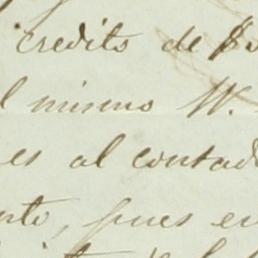 credito de $
l mismo W.
es al contad
nto, pues en